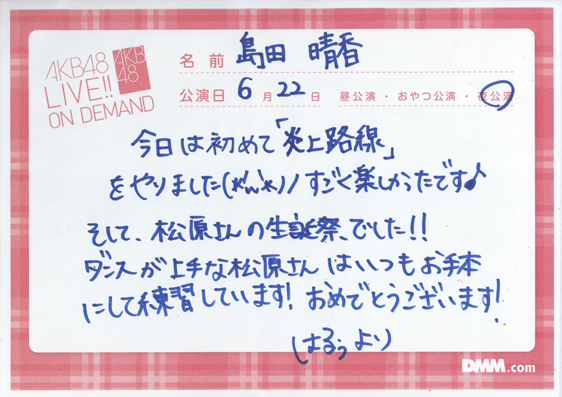 AKB48
LIVE!!
ON DEMAND
AKB
48
名前 島田 晴香
公演日 6月22日 昼公演・おやつ公演・夜公演
今日は初めて「炎上路線」
をやりました(*'ω'*)ノすごく楽しかったです♪
そして、松原さんの生誕祭、でした!!
ダンスが上手な松原さんはいつもお手本
にして練習しています! おめでとうございます!
はるぅより
DMM.com